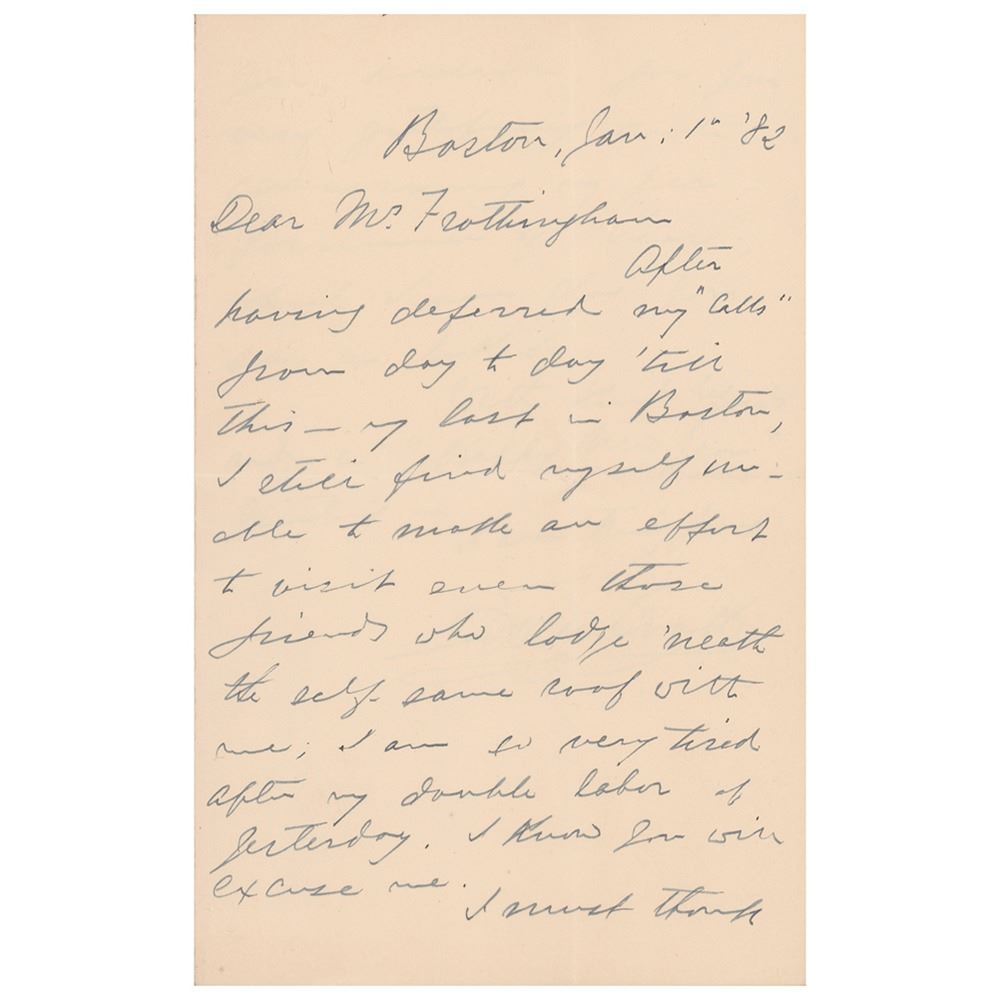 Boston, Jan: 1st '82
Dear Mrs. Frottingham
After
having deferred my "Calls"
from day to day 'till
this — my last in Boston,
I still find myself un-
able to make an effort
to visit even those
friends who lodge 'neath
the self-same roof with
me; I am so very tired
after my double labor of
yesterday. I know you will
excuse me.
I must thank